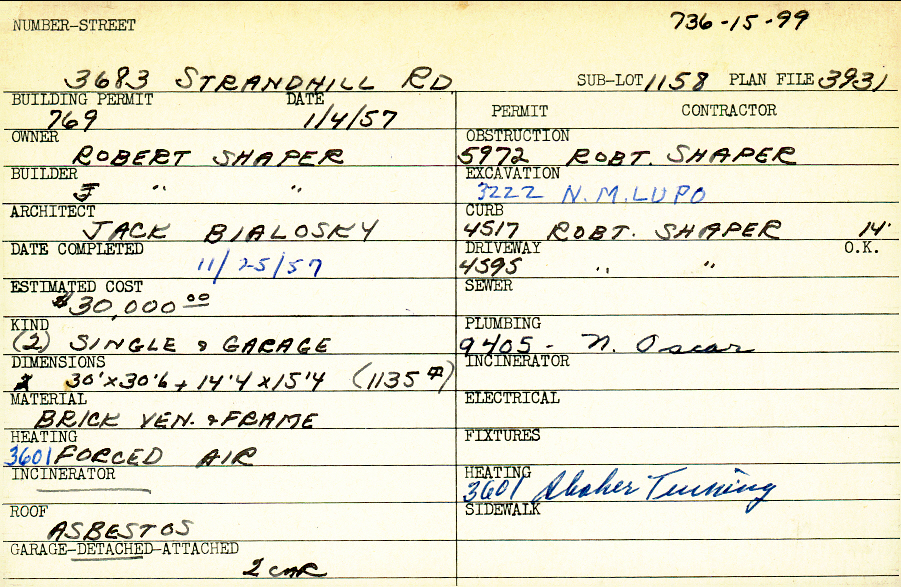 NUMBER-STREET 736-15-99
3683 STRANDHILL RD SUB-LOT 1158 PLAN FILE 3931
BUILDING PERMIT DATE
769 1/4/57
OWNER
ROBERT SHAPER
BUILDER
" "
ARCHITECT
JACK BIALOSKY
DATE COMPLETED
11/25/57
ESTIMATED COST
$30,000.00
KIND
(2) SINGLE & GARAGE
DIMENSIONS
30'x30'6 + 14'4 x 15'4 (1135 #)
MATERIAL
BRICK VEN. & FRAME
HEATING
3601 FORCED AIR
INCINERATOR
ROOF
ASBESTOS
GARAGE-DETACHED-ATTACHED
2 CAR
PERMIT CONTRACTOR
OBSTRUCTION
5972 ROBT. SHAPER
EXCAVATION
3222 N.M. LUPO
CURB
4517 ROBT. SHAPER 14'
DRIVEWAY O.K.
4595 " "
SEWER
PLUMBING
9405 - N. Oscar
INCINERATOR
ELECTRICAL
FIXTURES
HEATING
3601
SIDEWALK